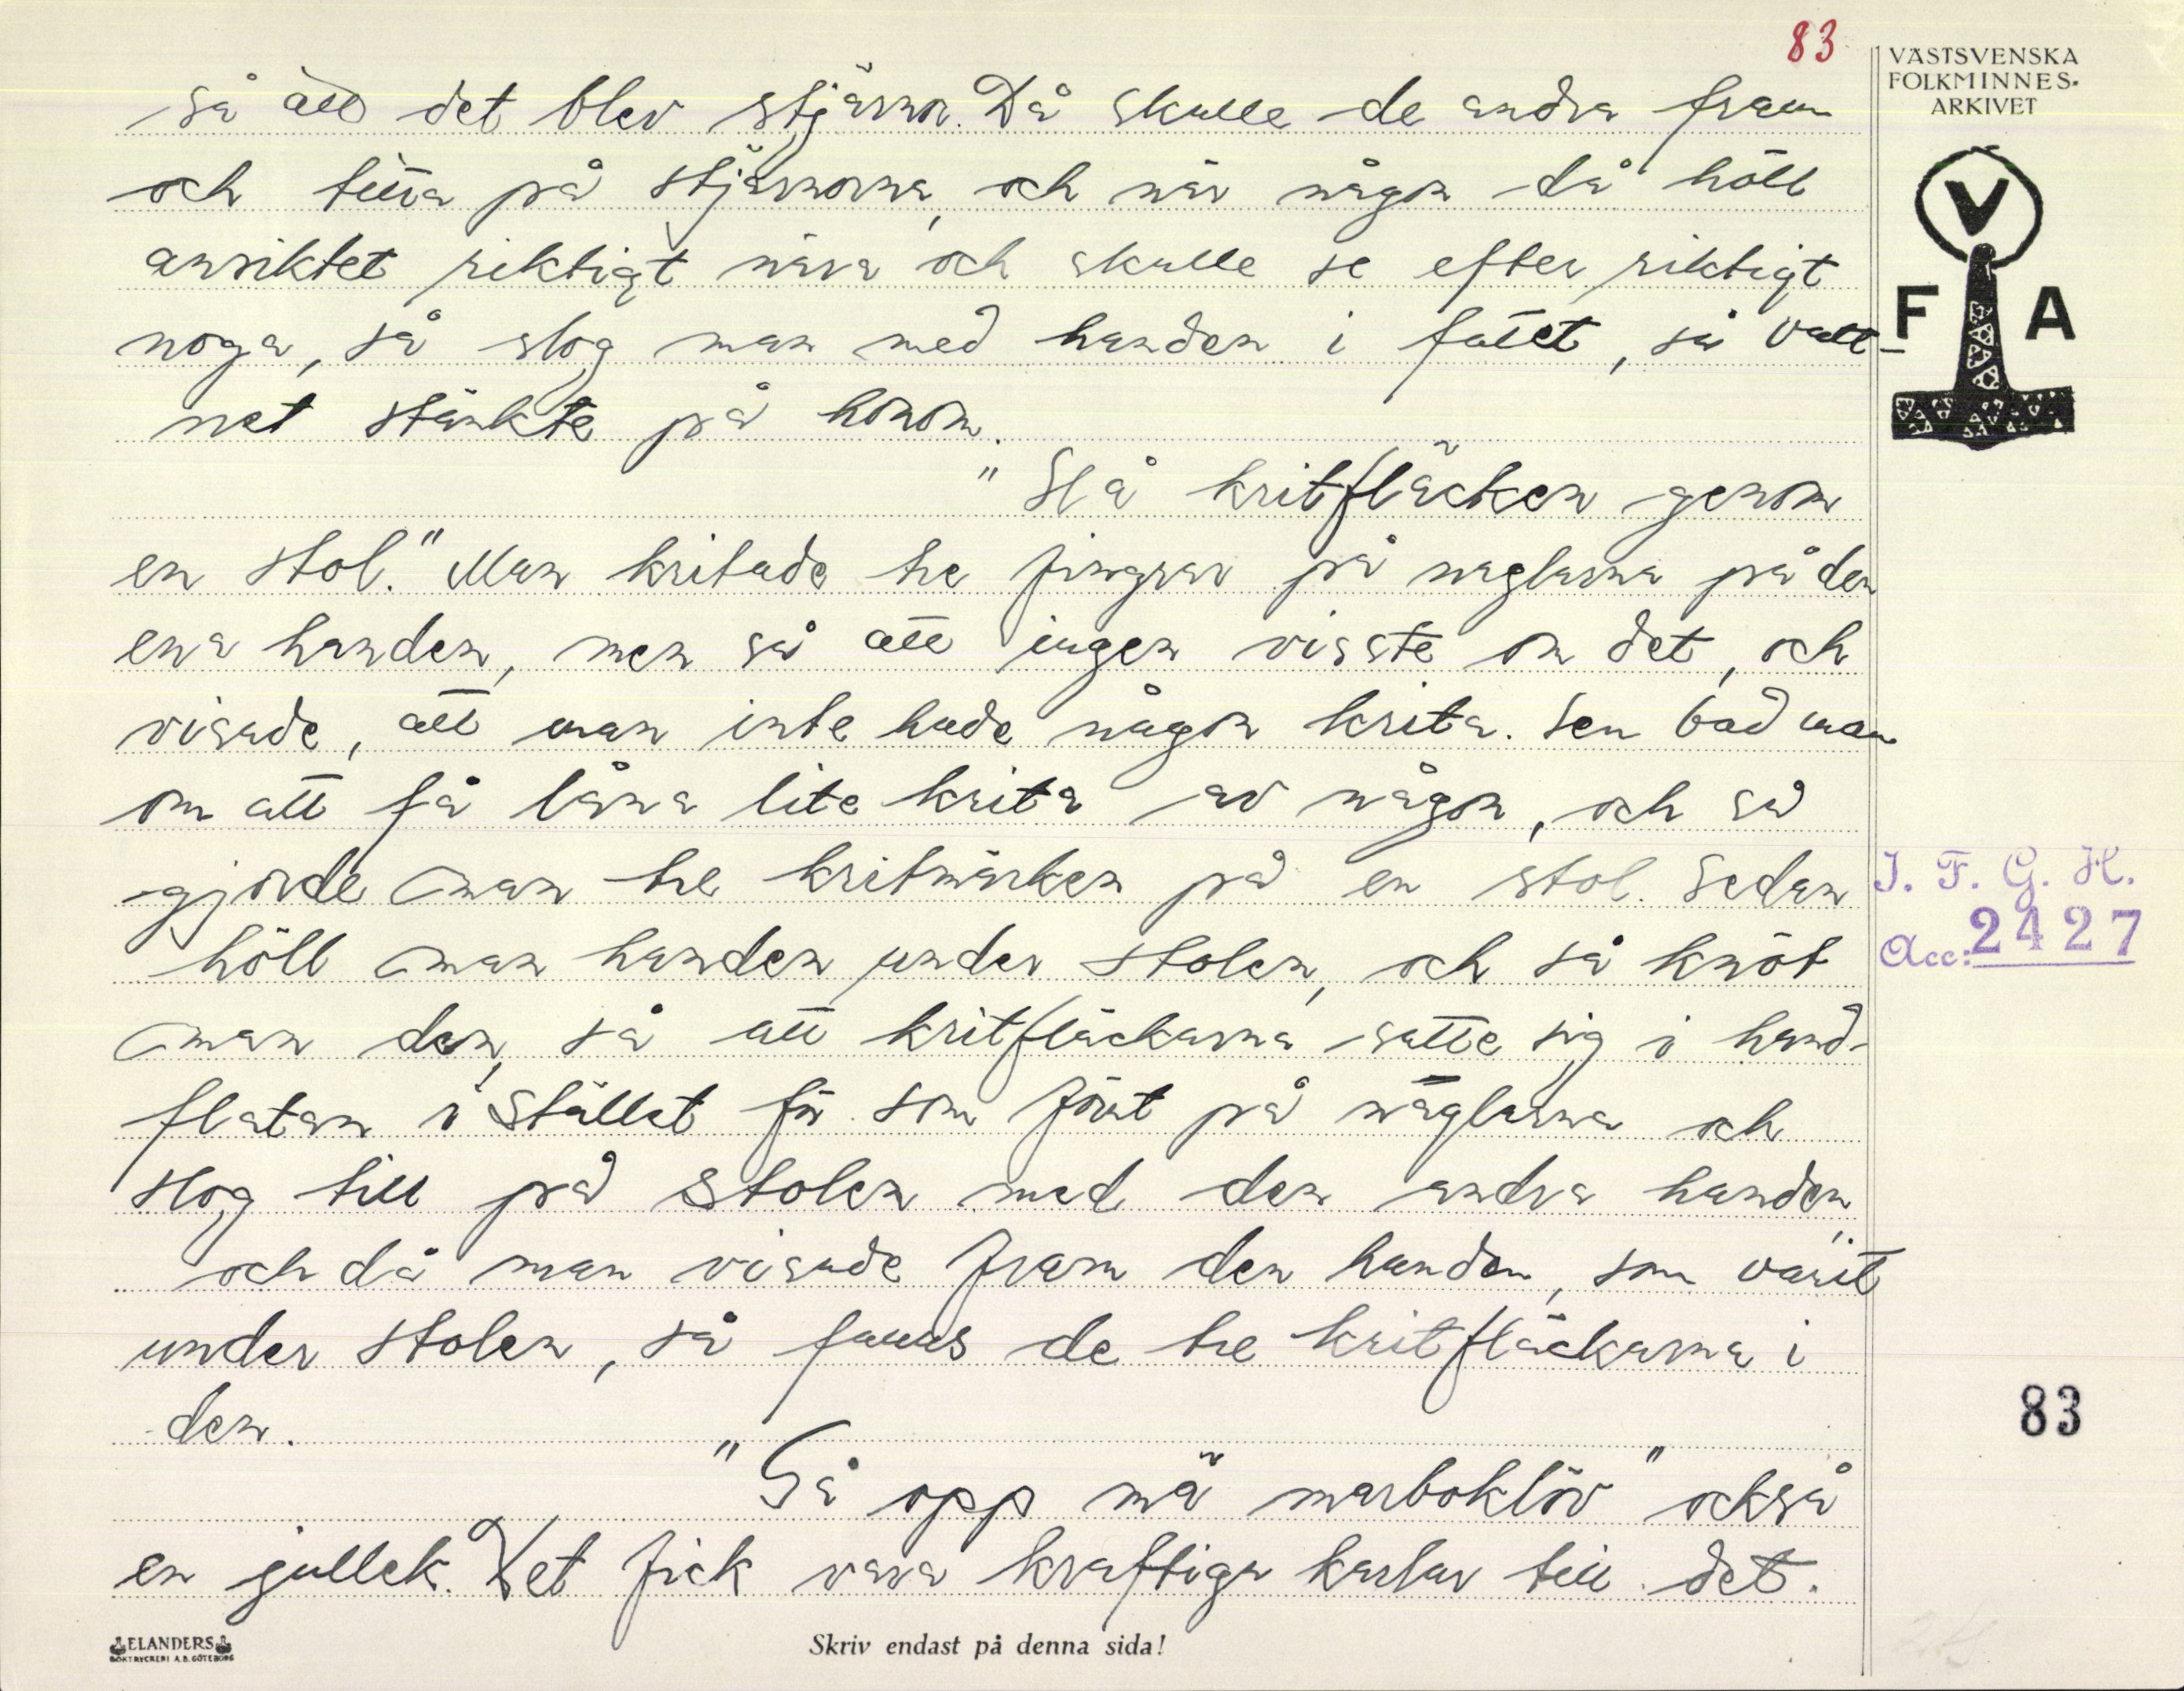 83
VÄSTSVENSKA
FOLKMINNES-
ARKIVET
V
F A
så att det blev stjärnor. Då skulle de andra fram
och titta på stjärnorna, och när någon då höll
ansiktet riktigt nära och skulle se efter riktigt
noga, så slog man med handen i fatet, så vatt-
net stänkte på honom.
"Slå kritfläcken genom
en stol." Man kritade tre fingrar på naglarna på den
ena handen, men så att ingen visste om det, och
visade, att man inte hade någon krita. Sen bad man
om att få låna lite krita av någon, och så
gjorde man tre kritmärken på en stol. Sedan
höll man handen under stolen, och så knöt
man den, så att kritfläckarna satte sig i hand-
flatan i stället för som först på naglarna och
slog till på stolen med den andra handen,
och då man visade fram den handen, som varit
under stolen, så fanns de tre kritfläckarna i
den.
"Gå opp mä marboklöv" också
en jullek. Det fick vara kraftiga karlar till det.
I. F. G. H.
Acc: 2427
83
ELANDERS
BOKTRYCKERI A.B. GÖTEBORG
Skriv endast på denna sida!